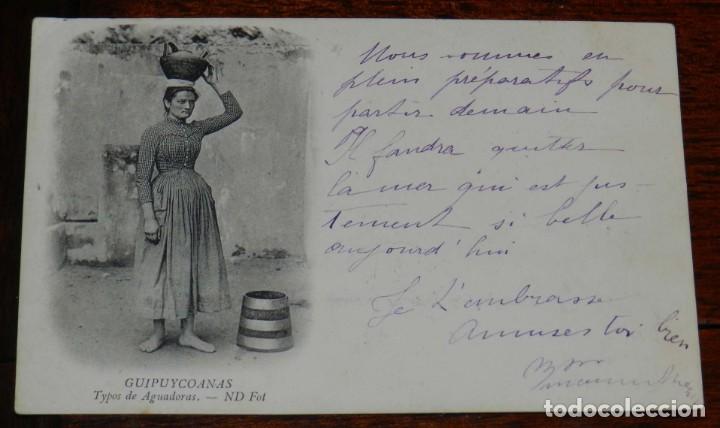 Nous sommes en
plein préparatifs pour
partir demain
Il faudra quitter
la mer qui est jus-
tement si belle
aujourd'hui
Je t'embrasse
Amuses toi bien
GUIPUYCOANAS
Typos de Aguadoras. — ND Fot
todocoleccion.net